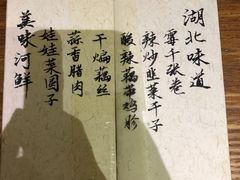 湖北味道
霉千张卷
辣炒韭菜干子
酸辣藕带鸡胗
干煸藕丝
蒜香腊肉
娃娃菜圆子
美味河鲜